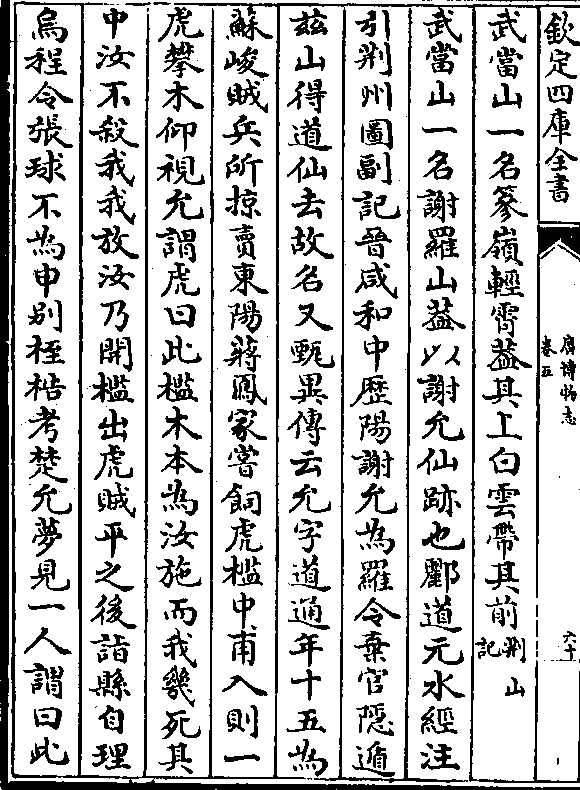 欽定四庫全書
廣博物志
卷五
六十
武當山一名參嶺輕霄葢其上白雲帶其前荆山記
武當山一名謝羅山葢以謝允仙跡也酈道元水經注
引荆州圖副記晉咸和中歴陽謝允為羅令棄官隠遁
兹山得道仙去故名又甄異傳云允字道通年十五為
蘇峻賊兵所掠賣東陽蔣鳳家嘗飼虎檻中甫入則一
虎攀木仰視允謂虎曰此檻木本為汝施而我幾死其
中汝不殺我我放汝乃開檻出虎賊平之後詣縣自理
烏程令張球不為申别桎梏考楚允夢見一人謂曰此